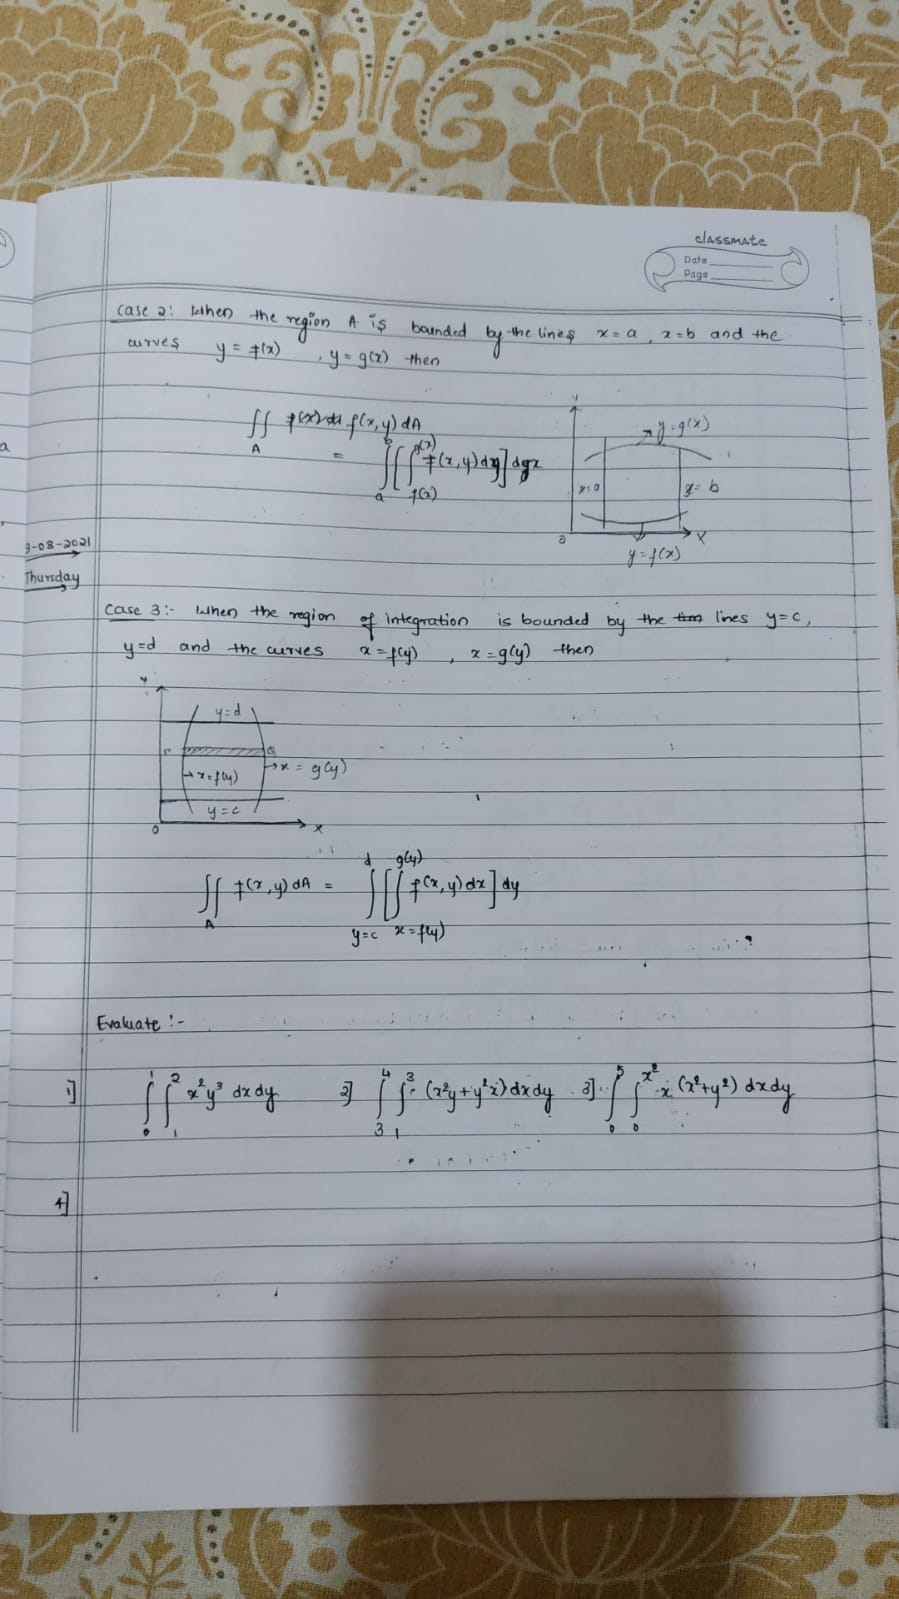 classmate
Date
Page
Case 2: When the region A is bounded by the lines x = a , x = b and the
curves y = f(x) , y = g(x) then
∬_A f(x,y) dA
= ∫_a^b [ ∫_{f(x)}^{g(x)} f(x,y) dy ] dx
Y
y = g(x)
x = a
x = b
O
X
y = f(x)
-08-2021
Thursday
Case 3:- When the region of integration is bounded by the lines y=c,
y=d and the curves x = f(y) , x = g(y) then
Y
y=d
P
Q
x = f(y)
x = g(y)
y = c
O
X
∬_A f(x,y) dA = ∫_{y=c}^{d} [ ∫_{x=f(y)}^{g(y)} f(x,y) dx ] dy
Evaluate :-
1] ∫_0^1 ∫_1^2 x²y³ dx dy 2] ∫_3^4 ∫_1^3 (x²y + y²x) dx dy 3] ∫_0^5 ∫_0^{x²} x (x²+y²) dx dy
4]